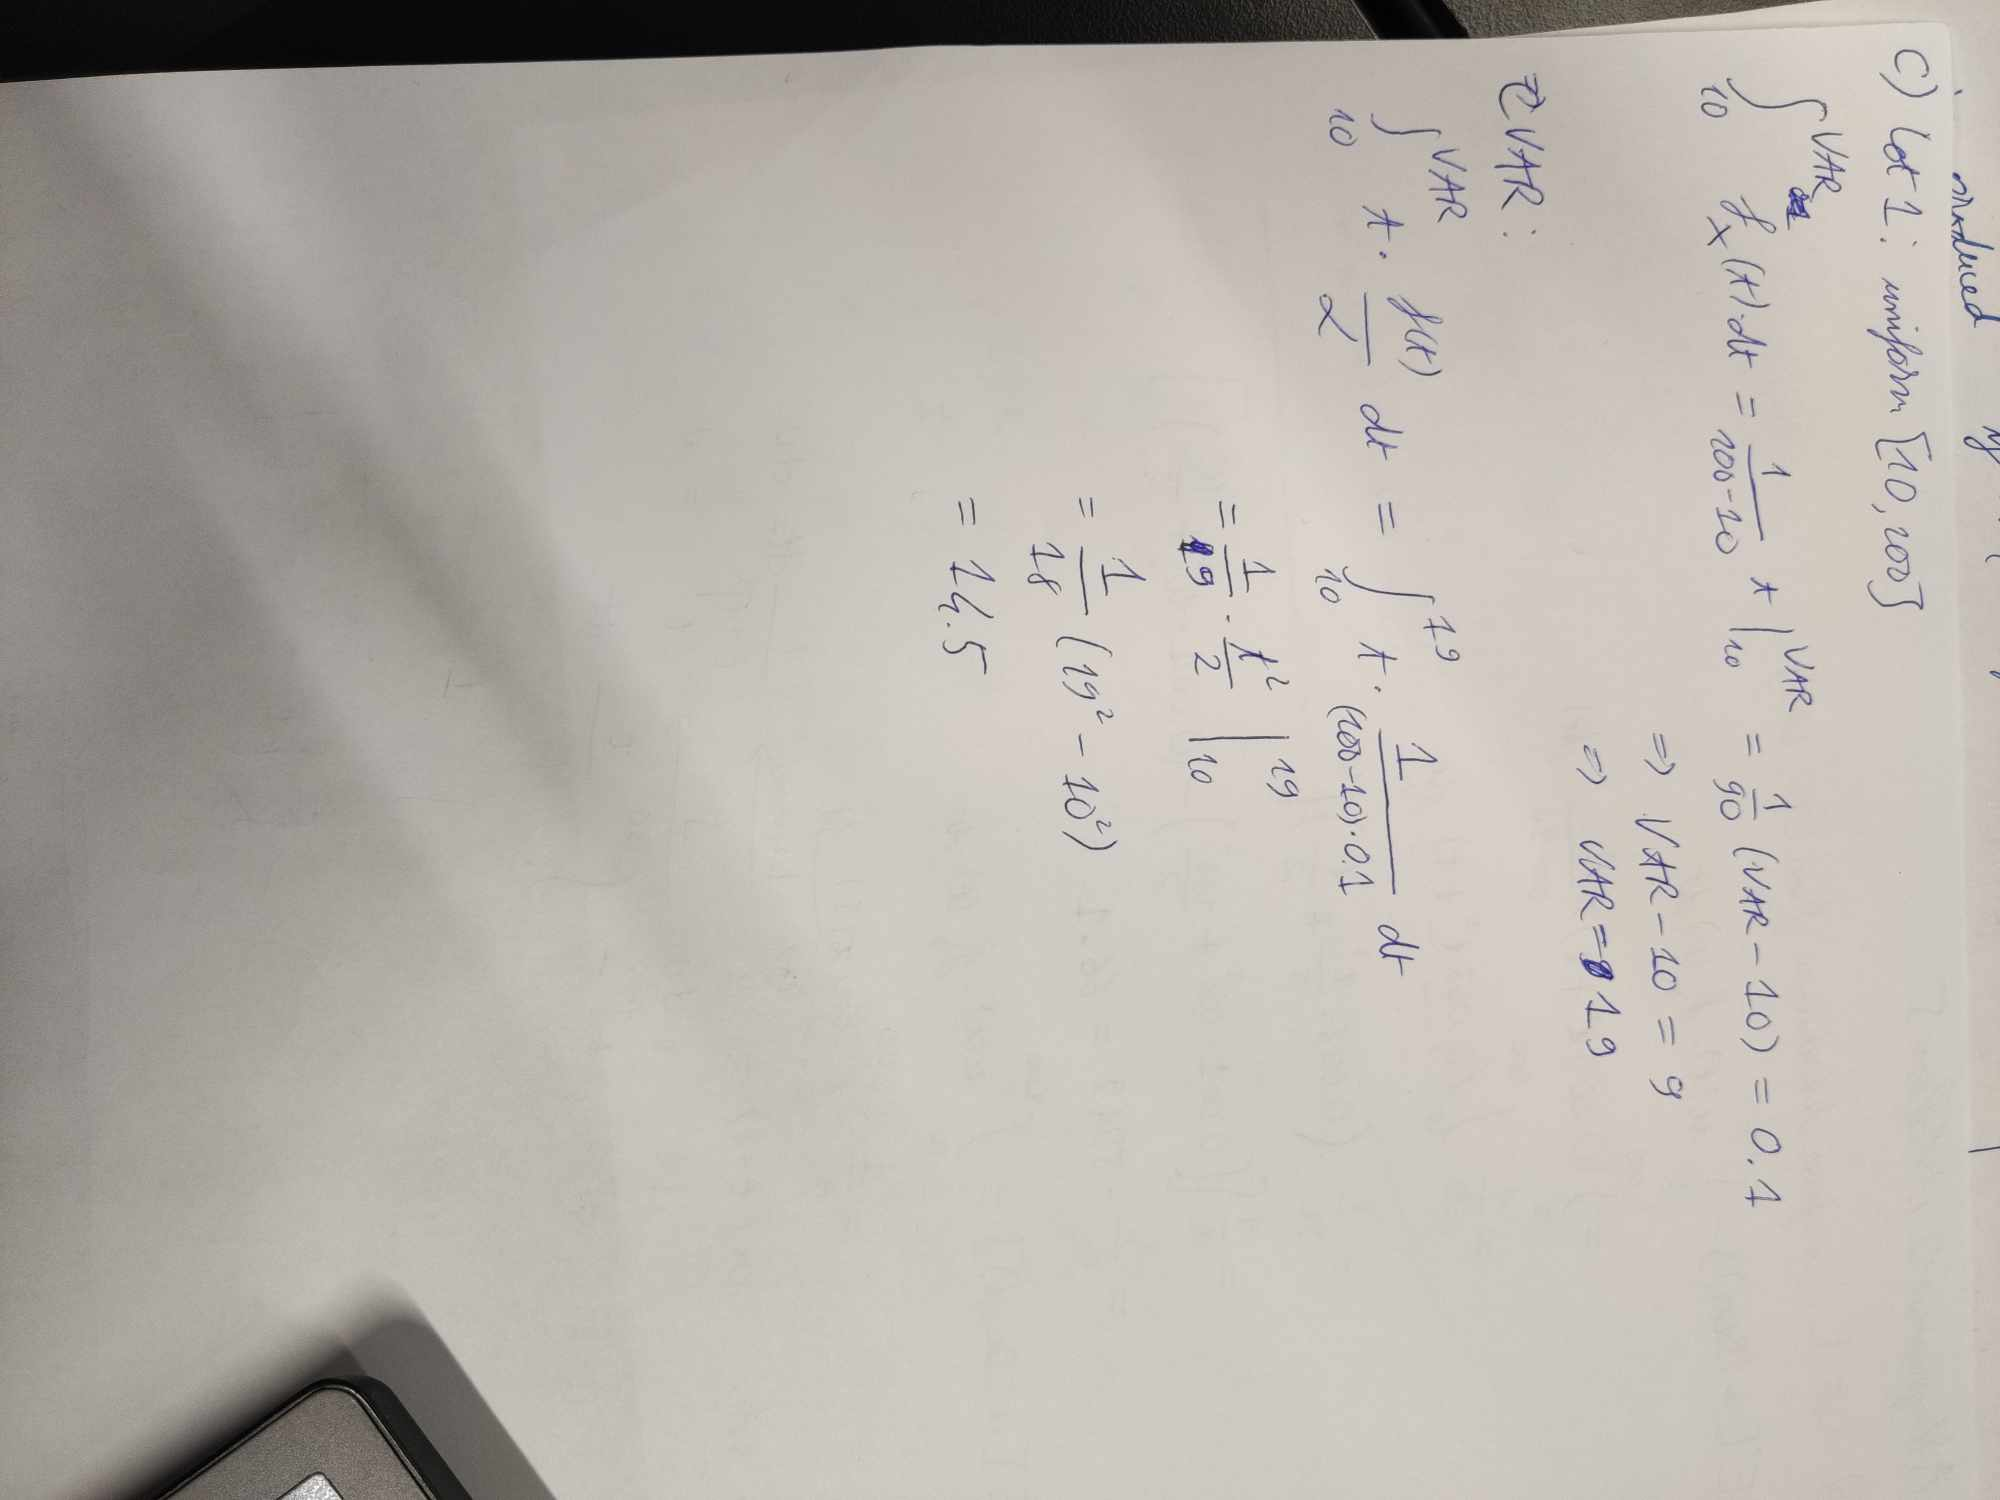 induced
c) lot 1: uniform [10, 100]
∫_10^VAR f_x(t)·dt = 1/(100-10) t |_10^VAR = 1/90 (VAR - 10) = 0.1
⇒ VAR - 10 = 9
⇒ VAR = 19
CVAR:
∫_10^VAR t · f(t)/α dt = ∫_10^19 t · 1/((100-10)·0.1) dt
= 1/9 · t²/2 |_10^19
= 1/18 (19² - 10²)
= 14.5